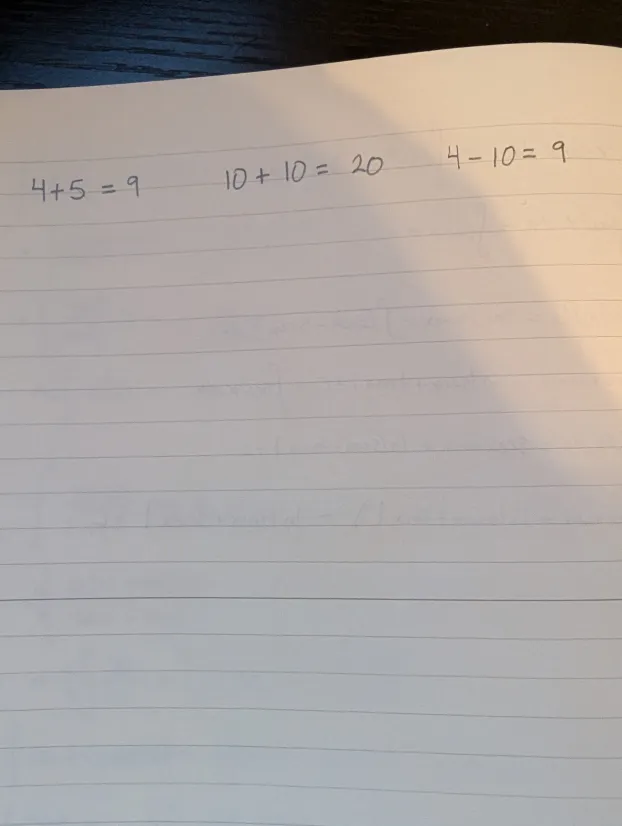 4+5 = 9 10 + 10 = 20 4 - 10 = 9